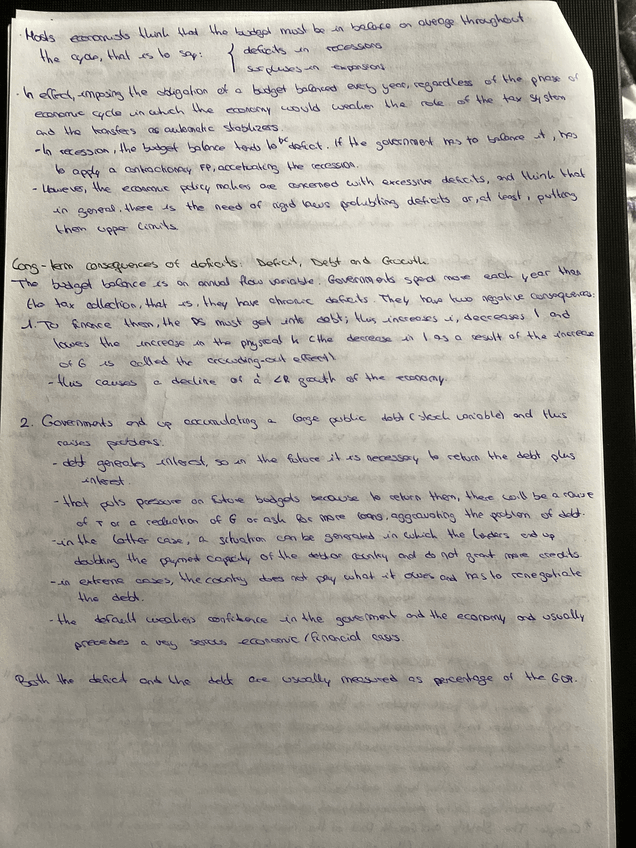 Mosts economists think that the budget must be in balance on average throughout
the cycle, that is to say: { deficits in recessions
surpluses in expansions
· In effect, imposing the obligation of a budget balanced every year, regardless of the phase of
economic cycle in which the economy would weaken the role of the tax system
and the transfers as automatic stabilizers.
- In recession, the budget balance tends to be deficit. If the government has to balance it, has
to apply a contractionary FP, accetuating the recession.
- However, the economic policy makers are concerned with excessive deficits, and think that
in general, there is the need of rigid laws prohibiting deficits or, at least, putting
them upper limits.
Long-term consequences of deficits: Deficit, Debt and Growth.
The budget balance is an annual flow variable. Governments spend more each year than
the tax collection, that is, they have chronic deficits. They have two negative consequences:
1. To finance them, the PS must get into debt; this increases i, decreases I and
lowers the increase in the physical k (the decrease in I as a result of the increase
of G is called the crowding-out effect)
- this causes a decline of a LR growth of the economy.
2. Governments end up accumulating a large public debt (stock variable) and this
raises problems:
- debt generates interest, so in the future it is necessary to return the debt plus
interest.
- that puts pressure on future budgets because to return them, there will be a raise
of T or a reduction of G or ask for more loans, aggravating the problem of debt.
- in the latter case, a situation can be generated in which the lenders end up
doubting the payment capacity of the debtor country and do not grant more credits
- in extreme cases, the country does not pay what it owes and has to renegotiate
the debt.
- the default weakens confidence in the goverment and the economy and usually
precedes a very serious economic/financial crisis.
Both the deficit and the debt are usually measured as percentage of the GDP.